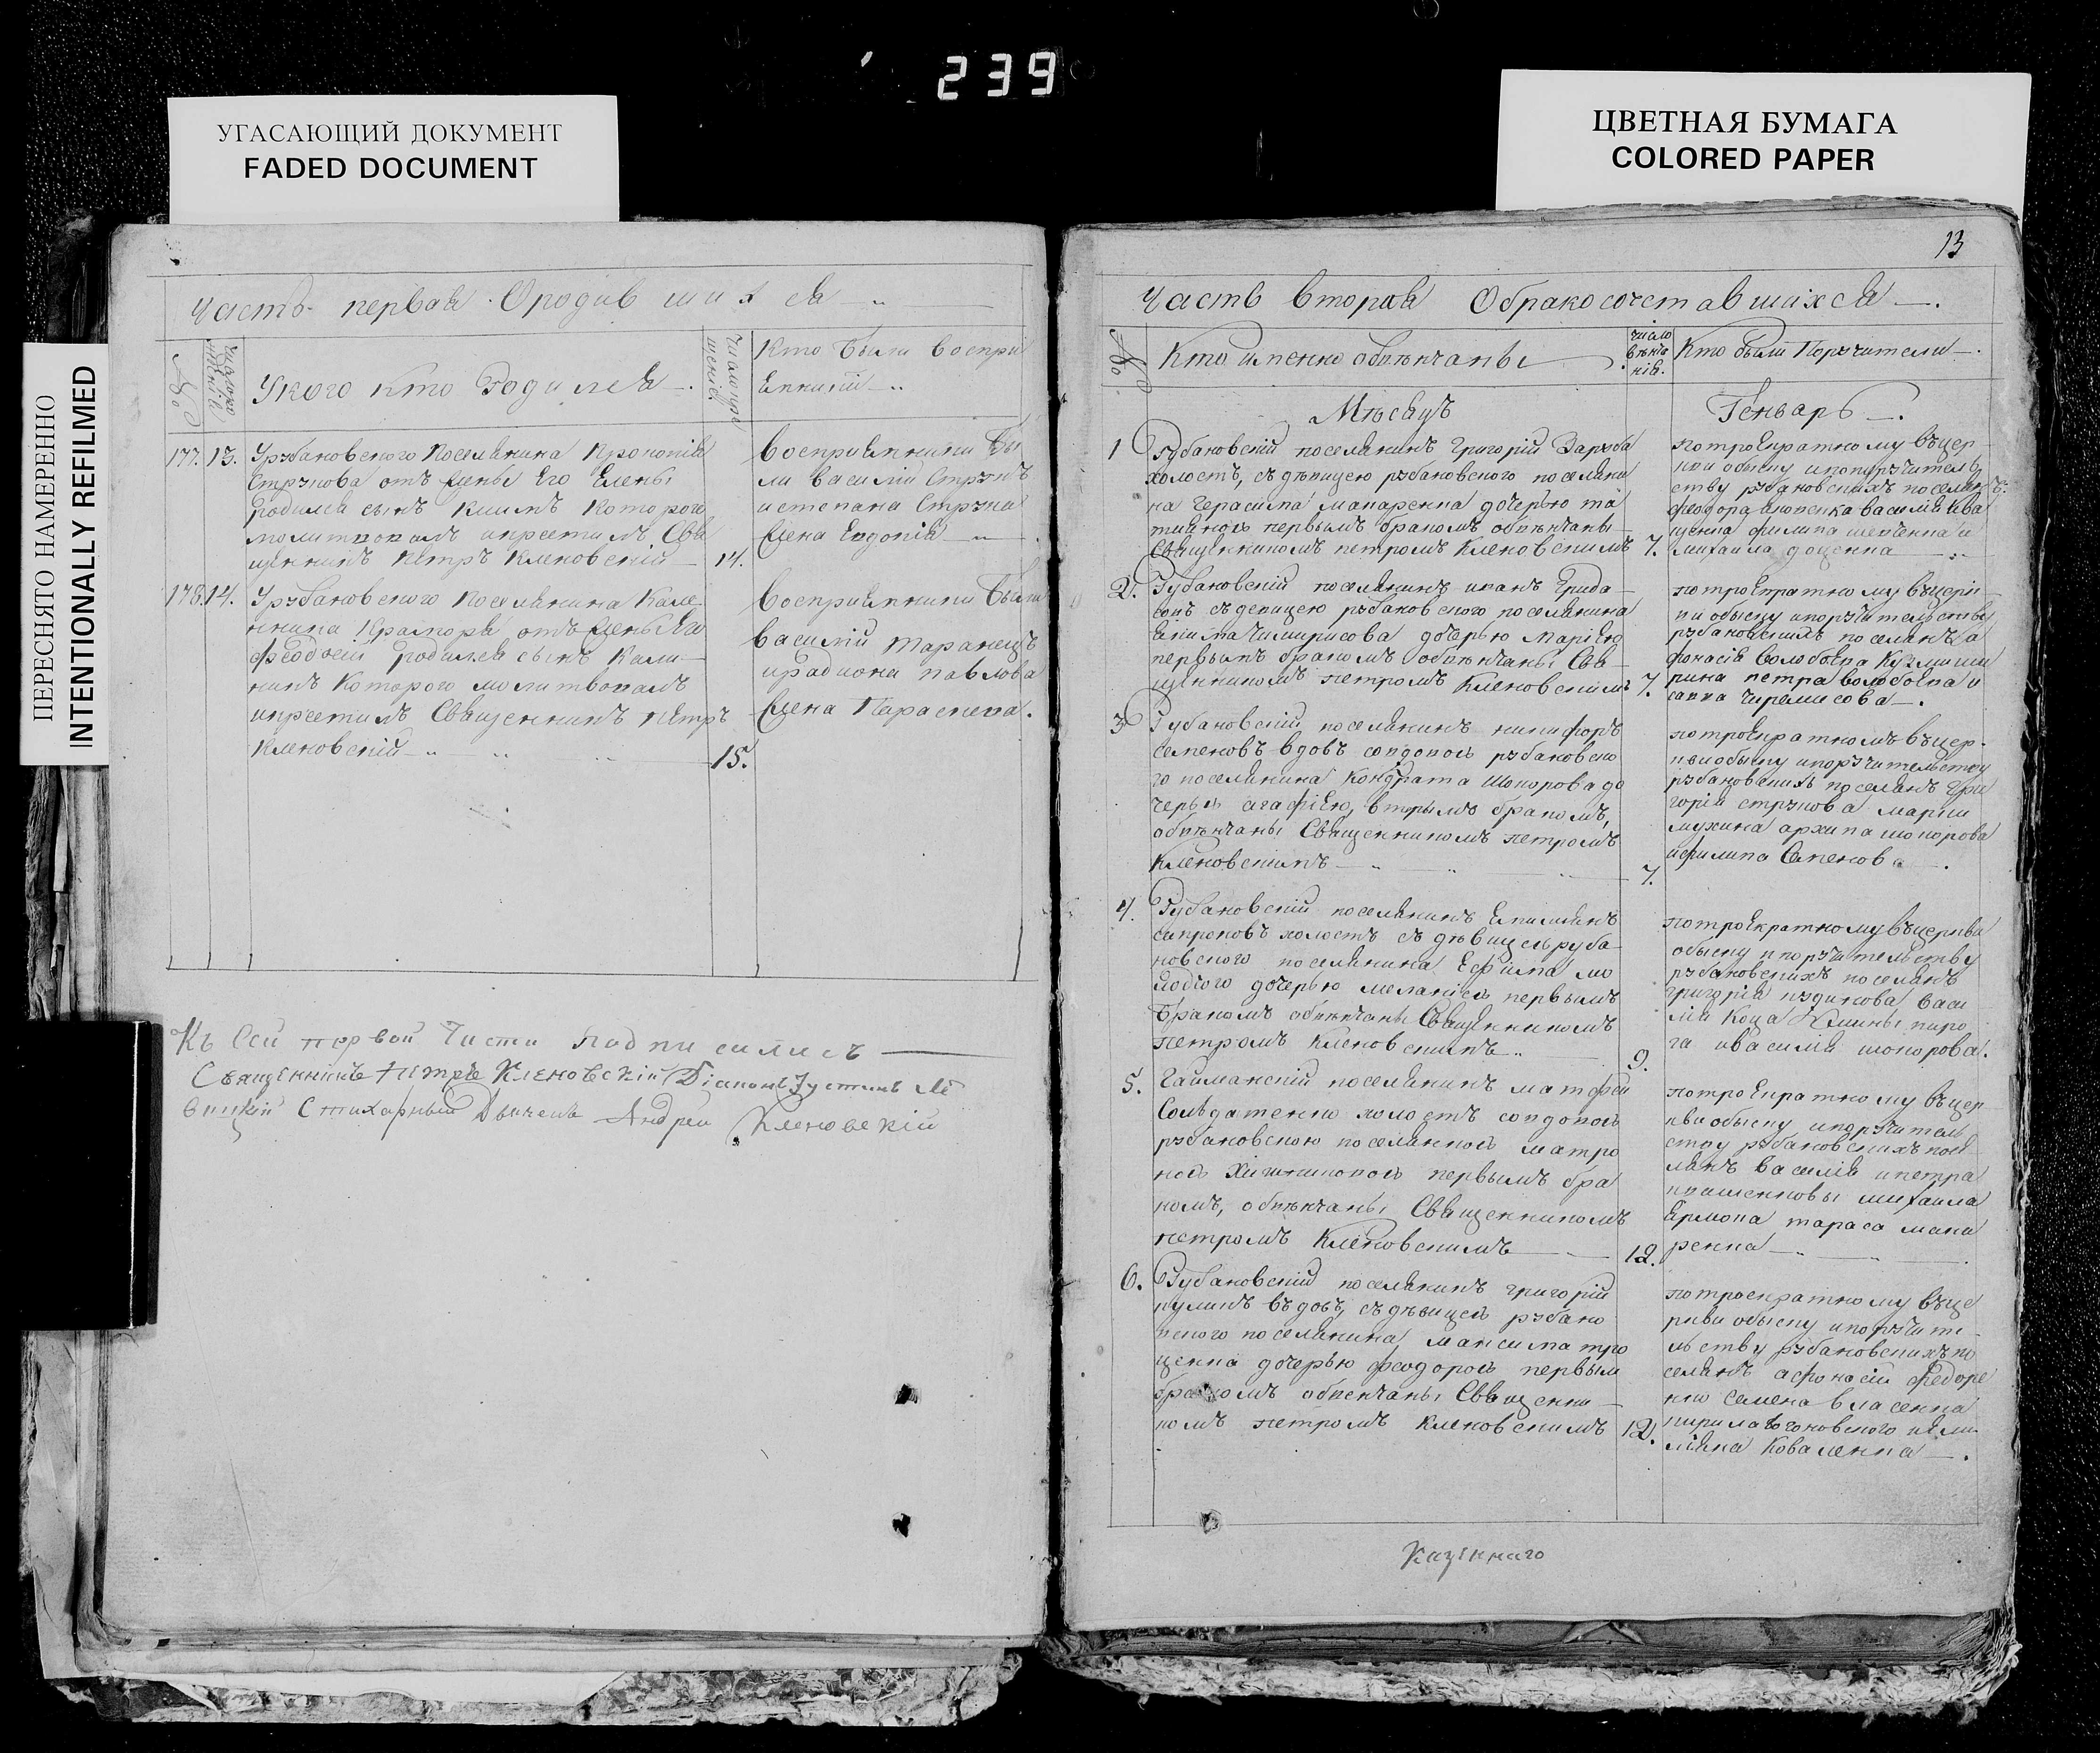 239
УГАСАЮЩИЙ ДОКУМЕНТ
FADED DOCUMENT
ЦВЕТНАЯ БУМАГА
COLORED PAPER
ПЕРЕСНЯТО НАМЕРЕННО
INTENTIONALLY REFILMED
Часть первая Ородившихся
№
У кого кто родился
Кто были воспри
емники
177. 13. Урѣбановского поселянина Прокопія
Стрѣкова отъ жены его Елены
родился сынъ Климъ которого
молитвовалъ икрестилъ Свя
щенникъ Петръ Кленовскій 14.
Восприемники бы
ли василій Стрѣкъ
истепана Стрѣка
жена Евдокія
178. 14. Урѣбановского поселянина Кали
нника отъ жены его
феодосіи родился сынъ Кали
никъ которого молитвовалъ
икрестилъ Священникъ петръ
Кленовскій 15.
Восприемники были
василій Таранецъ
ирадиона павлова
жена Параскева.
Къ Сей первой Части подписались
Священникъ Петръ Кленовскій Діаконъ Іустинъ Ле
вицкій Стихарный Дьячекъ Андрей Кленовскій
13
Часть вторая Обракосочетавшихся
№
Кто именно обвѣнчаны
число
вѣнча
нія.
Кто были Порѣчители
Мѣсяцъ
Генварь
1 Рубановскій поселянинъ григорій Заруба
холостъ, съ дѣвицею рѣбановского поселяни
на герасима макаренка дочерью та
тианою первымъ бракомъ обвѣнчаны
Священникомъ петромъ Кленовскимъ 7.
потроекратному въцер
кви обыску ипопорѣчитель
ству рѣбановскихъ поселянъ
феодора василія ива
щенка филипа шевченка и
михаила доценка
2. Рубановскій поселянинъ иванъ
съдевицею рѣбановского поселянина
дочерью Маріею
первымъ бракомъ обвѣнчаны Свя
щенникомъ петромъ Кленовскимъ 7.
потроекратному въцерк
ви обыску ипорѣчительству
рѣбановскихъ поселянъ а
фонасія волобоева Кузмы ши
рина петра волобоева и
савка чиремисова
3 Рубановскій поселянинъ никифоръ
семеновъ вдовъ совдовою рѣбановско
го поселянина Кондрата Шопорова до
черью агафіею, вторымъ бракомъ,
обвѣнчаны Священникомъ петромъ
Кленовскимъ 7.
потроекратномъ въцер
кви обыску ипорѣчительству
рѣбановскихъ поселянъ гри
горія стрѣкова
мухина архипа шопорова
ифилипа Семенова
4. Рубановскій поселянинъ Емильянъ
холостъ съ дѣвицею руба
новского поселянина Ефима мо
лодчого дочерью меланіею первымъ
бракомъ обвѣнчаны Священникомъ
петромъ Кленовскимъ 9.
потроекратному въцеркви
обыску ипорѣчительству
рѣбановскихъ поселянъ
григорія васи
лія Коца пиро
га ивасилія шопорова.
5. Гайманскій поселянинъ матфей
Солдатенко холостъ совдовою
рѣбановскою поселянкою матро
ною первымъ бра
комъ, обвѣнчаны Священникомъ
петромъ Кленовскимъ 12.
потроекратному въцер
кви обыску ипорѣчитель
ству рѣбановскихъ посе
лянъ василія ипетра
михаила
тараса мака
ренка
6. Рубановскій поселянинъ григорій
въдовъ, съдѣвицею рѣбано
вского поселянина максима тро
ценка дочерью феодорою первым
бракомъ обвенчаны Священни
комъ петромъ Кленовскимъ 12.
потроекратному въце
ркви обыску ипорѣчите
льству рѣбановскихъ по
селянъ афонасія федоре
нко семена власенка
ияими
ліяна Коваленка
Казіннаго